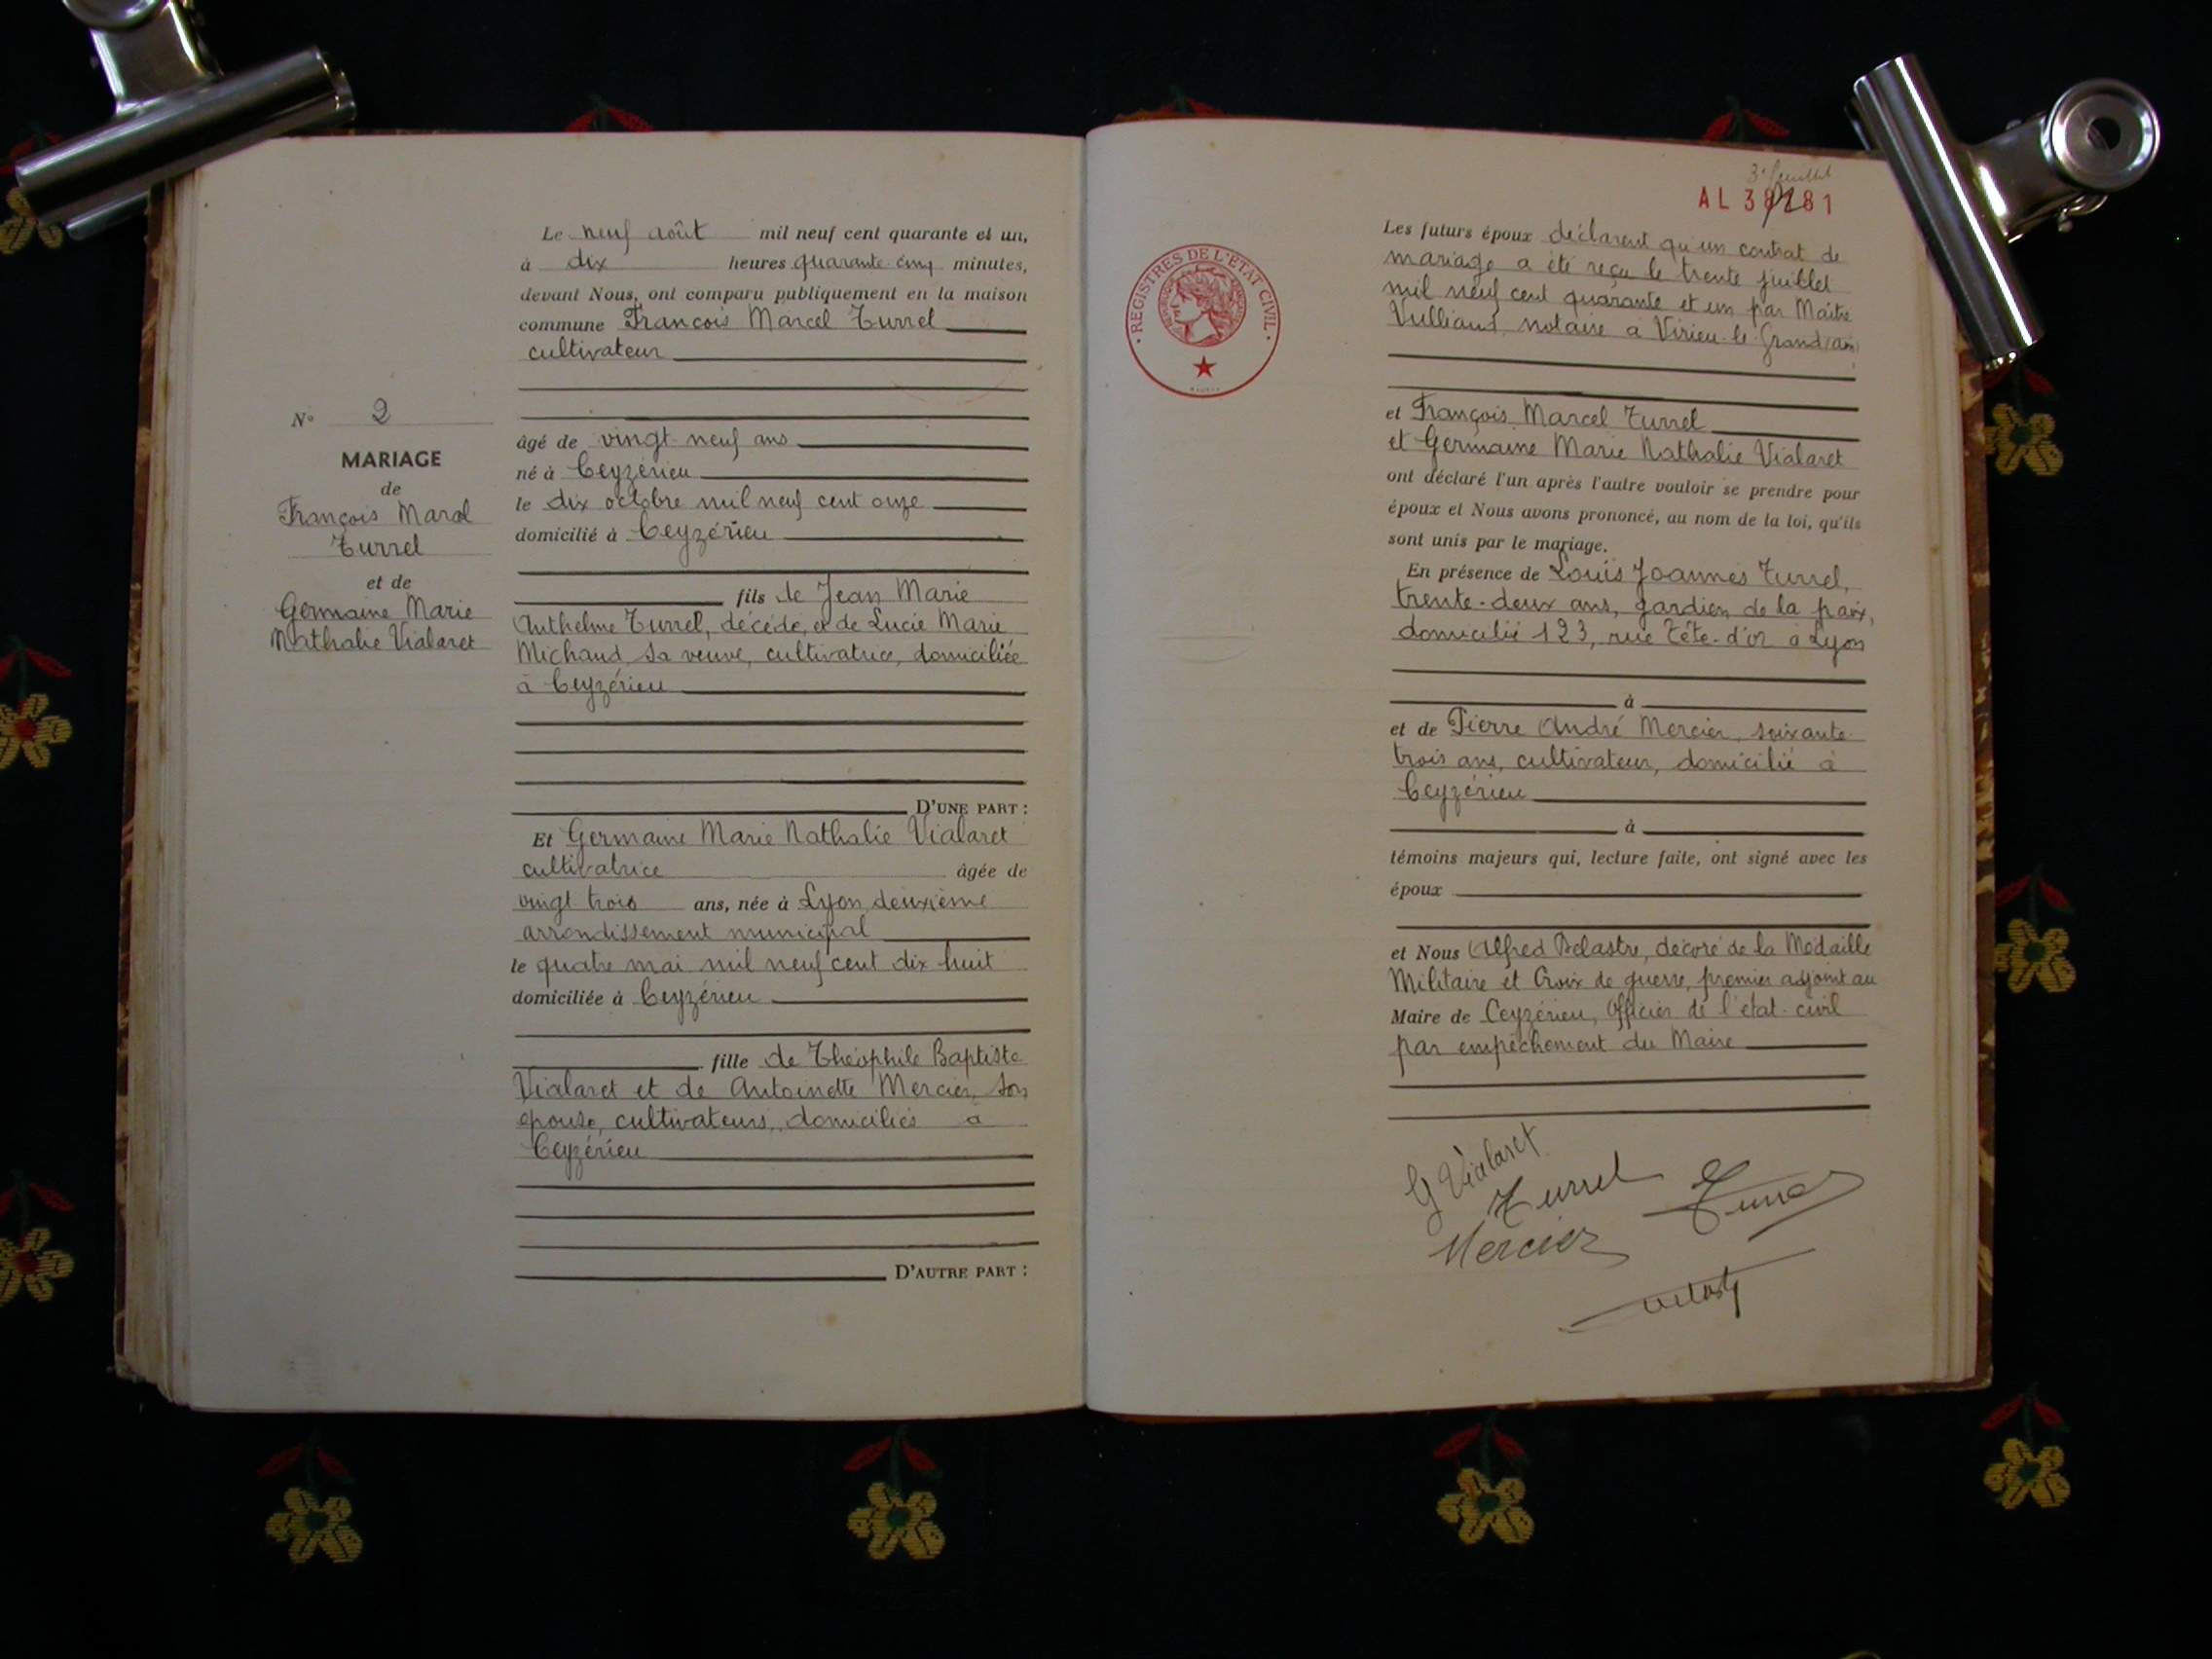 Le neuf août mil neuf cent quarante et un,
à dix heures quarante-cinq minutes,
devant Nous, ont comparu publiquement en la maison
commune François Marcel Turrel
cultivateur
âgé de vingt-neuf ans
né à Ceyzérieu
le dix octobre mil neuf cent onze
domicilié à Ceyzérieu
fils de Jean Marie
Anthelme Turrel, décédé, et de Lucie Marie
Michaud, sa veuve, cultivatrice, domiciliée
à Ceyzérieu
D'UNE PART :
Et Germaine Marie Nathalie Vialaret
cultivatrice âgée de
vingt trois ans, née à Lyon, deuxième
arrondissement municipal
le quatre mai mil neuf cent dix huit
domiciliée à Ceyzérieu
fille de Théophile Baptiste
Vialaret et de Antoinette Mercier, son
épouse, cultivateurs, domiciliés à
Ceyzérieu
D'AUTRE PART :
N° 2
MARIAGE
de
François Marcel
Turrel
et de
Germaine Marie
Nathalie Vialaret
3e feuillet
REGISTRES DE L'ÉTAT CIVIL
Les futurs époux déclarent qu'un contrat de
mariage a été reçu le trente juillet
mil neuf cent quarante et un par Maître
Vulliaud, notaire à Virieu-le-Grand (Ain)
et François Marcel Turrel
et Germaine Marie Nathalie Vialaret
ont déclaré l'un après l'autre vouloir se prendre pour
époux et Nous avons prononcé, au nom de la loi, qu'ils
sont unis par le mariage.
En présence de Louis Joannès Turrel,
trente-deux ans, gardien de la paix,
domicilié 123, rue Tête-d'or à Lyon
à
et de Pierre André Mercier, soixante-
trois ans, cultivateur, domicilié à
Ceyzérieu
à
témoins majeurs qui, lecture faite, ont signé avec les
époux
et Nous Alfred Delastre, décoré de la Médaille
Militaire et Croix de guerre, premier adjoint au
Maire de Ceyzérieu, Officier de l'état-civil
par empêchement du Maire
G Vialaret
Turrel
Mercier